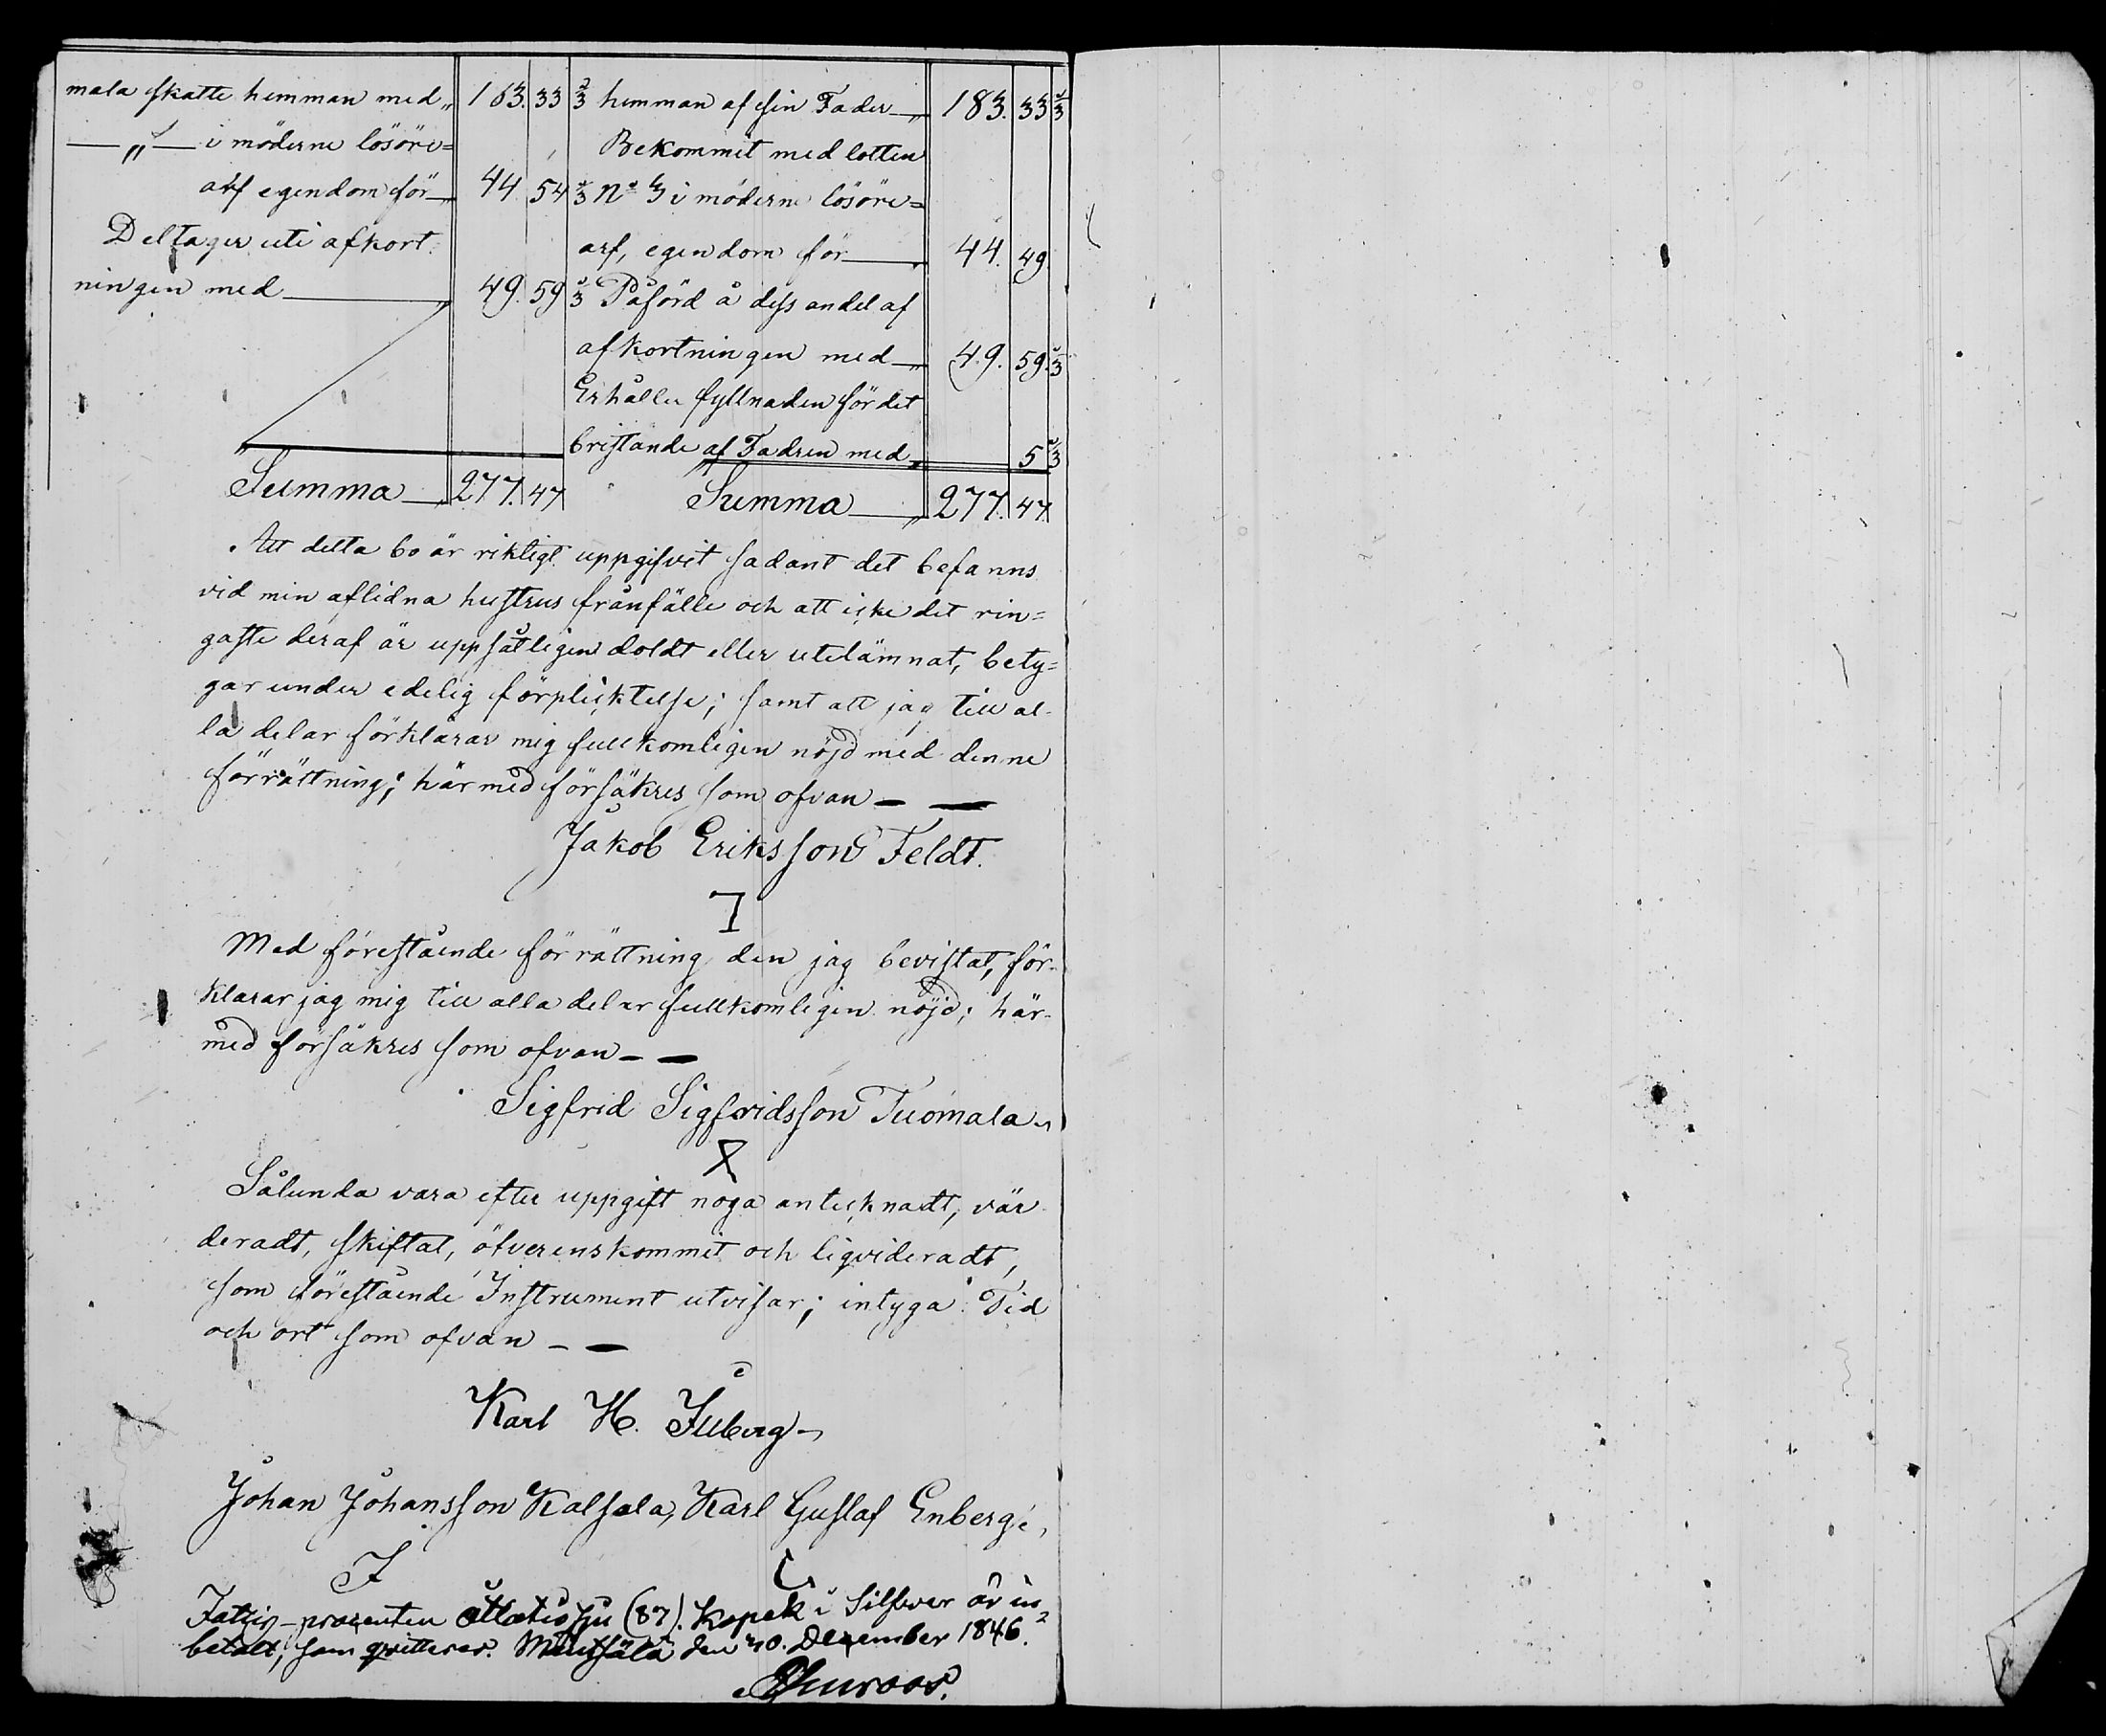 mala skatte hemman med „ 183. 33 1/3
— „ — i möderne lösöre=
arf egendom för — 44 54 2/3
Deltager uti afkort
ningen med — 49. 59
Summa — 277. 47
hemman af sin Fader — „ 183. 33 1/3
Bekommit med lotten
N:o 3 i möderne lösöre=
arf, egendom för — 44. 49.
Påförd å dess andel af
afkortningen med — „ 49. 59.
Erhåller fyllnaden för det
bristande af Fadren med „ 5
Summa — „ 277. 47.
Att detta bo är riktigt uppgifvit sadant det befanns
vid min aflidna hustrus frånfälle och att icke det rin=
gaste deraf är uppsåtligen doldt eller utelämnat, bety=
gar under edelig förplicktelse; samt att jag till al-
la delar förklarar mig fullkomligen nöjd med denne
förrättning; härmed försäkres som ofvan — —
Jakob Eriksson Feldt.
Med förestående förrättning den jag bevistat, för-
klarar jag mig till alla delar fullkomligen nöjd; här-
med försäkres som ofvan — —
Sigfrid Sigfridsson Tuomala
Sålunda vara efter uppgift noga antecknadt, vär
deradt, skiftat, öfverenskommit och liqvideradt,
som förestående Instrument utvisar; intyga. Tid
och ort som ofvan — —
Karl H. Juberg
Johan Johansson Kalsala, Karl Gustaf Enberg
Fattig-procenten åttatiosju (87). Kopek i Silfwer är in
betalt, som qvitteras. den 30. December 1846.